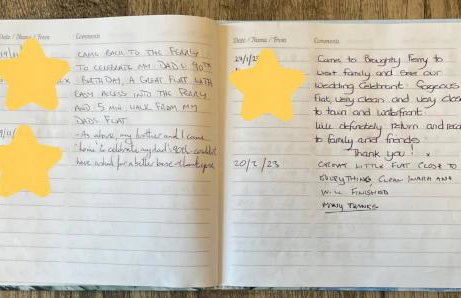 Date / Name / From Comments
CAME BACK TO THE FERRY
TO CELEBRATE MY DAD'S 90TH
BIRTHDAY. A GREAT FLAT WITH
EASY ACCESS INTO THE FERRY
AND 5 MIN WALK FROM MY
DADS FLAT
- As above, my brother and I came
'home' to celebrate my dad's 90th. couldn't
have asked for a better base - thank you x
Date / Name / From Comments
Came to Broughty Ferry to
visit family and see our
Wedding Celebrant. Gorgeous
flat, very clean and very close
to town and waterfront.
Will definitely return and
to family and friends
Thank you! x
20/2/23 GREAT LITTLE FLAT CLOSE TO
EVERYTHING CLEAN WARM AND
WELL FINISHED
MANY THANKS